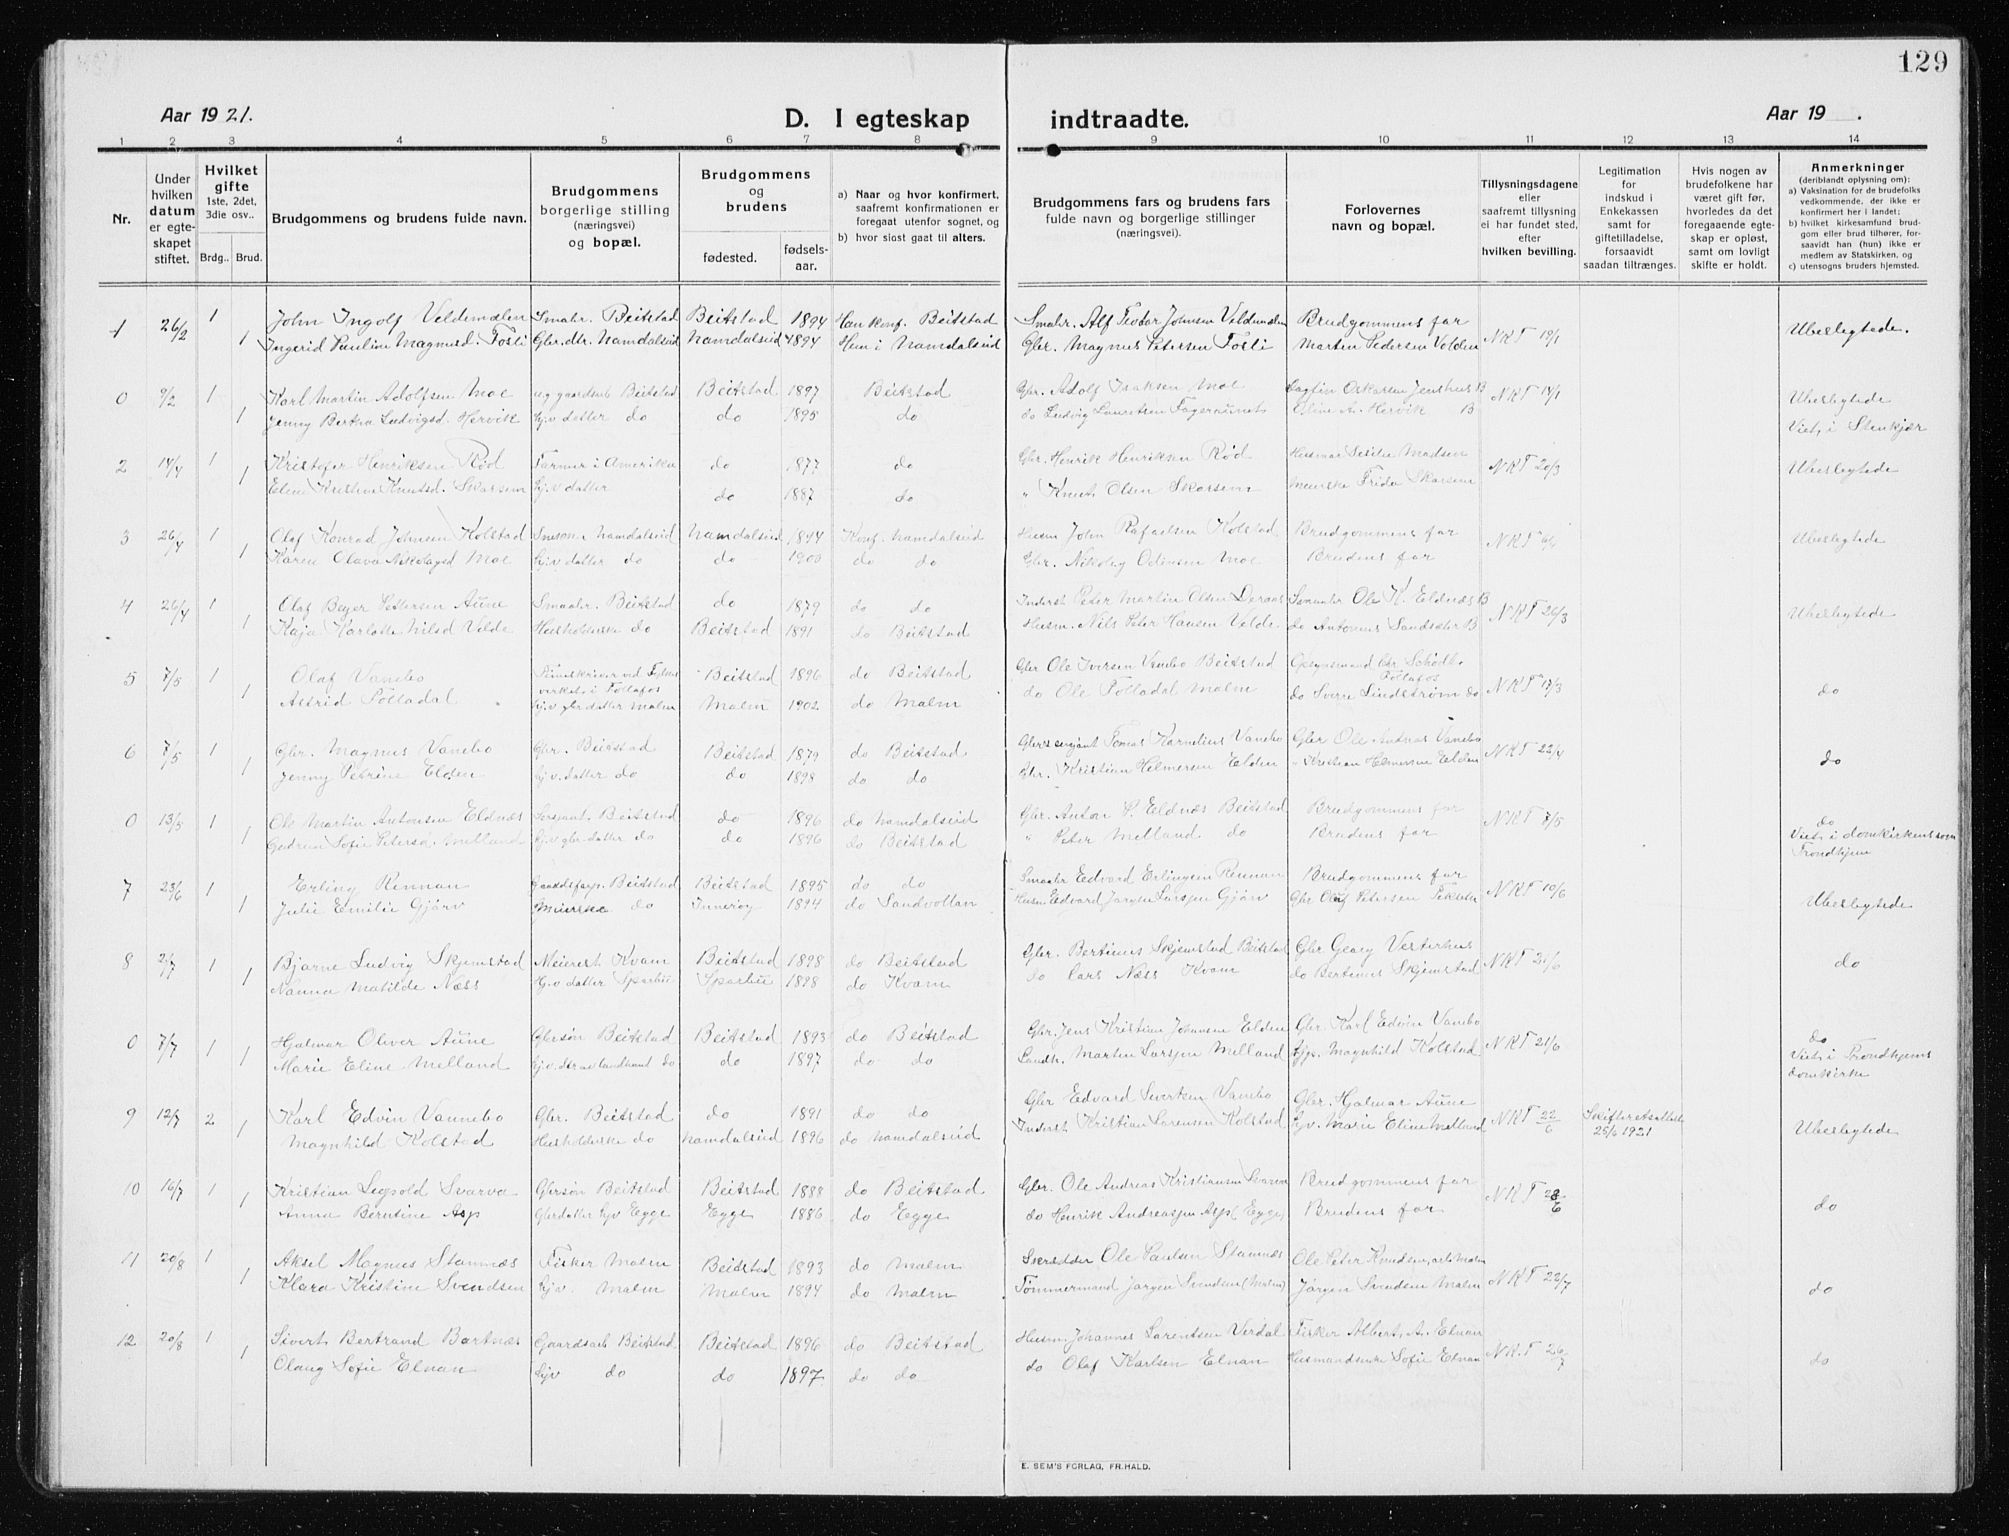 129
Aar 1921.
D. I egteskap indtraadte.
Aar 19 .
1 2 3 4 5 6 7 8 9 10 11 12 13 14
Nr.
Under hvilken datum er egteskapet stiftet.
Hvilket gifte 1ste, 2det, 3die osv..
Brdg.. Brud.
Brudgommens og brudens fulde navn.
Brudgommens borgerlige stilling (næringsvei) og bopæl.
Brudgommens og brudens
fødested. fødsels-aar.
a) Naar og hvor konfirmert, saafremt konfirmationen er foregaat utenfor sognet, og
b) hvor sidst gaat til alters.
Brudgommens fars og brudens fars fulde navn og borgerlige stillinger (næringsvei).
Forlovernes navn og bopæl.
Tillysningsdagene eller saafremt tillysning ei har fundet sted, efter hvilken bevilling.
Legitimation for indskud i Enkekassen samt for giftetilladelse, forsaavidt saadan tiltrænges.
Hvis nogen av brudefolkene har været gift før, hvorledes da det foregaaende egteskap er opløst, samt om lovligt skifte er holdt.
Anmerkninger (deriblandt oplysning om):
a) Vaksination for de brudefolks vedkommende, der ikke er konfirmert her i landet;
b) hvilket kirkesamfund brudgom eller brud tilhører, forsaavidt han (hun) ikke er medlem av Statskirken, og
c) utensogns bruders hjemsted.
1 26/2 1 John Ingolf Veldemælen Smabr. Beitstad Beitstad 1894 Han konf. Beitstad Smabr. Alf Teodor Johnsen Veldemælen Brudgommens far NKT 19/1 Ubeslegtede.
1 Ingerid Pauline Magnusd. Fosli Gbr.dtr. Namdalseid Namdalseid 1894 Hun i Namdalseid Gbr. Magnus Petersen Fosli Martin Pedersen Volden
0 9/2 1 Karl Martin Adolfsen Moe Beitstad Beitstad 1897 Beitstad Gbr. Adolf Isaksen Moe NKT 14/1 Ubeslegtede
1 Jenny Bertha Ludvigsd. Hervik Hjv datter do do 1895 do do Ludvig Lauritsen Fageraunet Hervik B Viet i Stenkjær
2 14/4 1 Kristofer Henriksen Rød Farmer i Amerika do 1877 do Gbr. Henrik Henriksen Rød Madsen NKT 20/3 Ubeslegtede
1 Eline Kristine Knutsd. Skarsem Hjv datter do 1887 do " Knut Olsen Skarsem Meierske Frida Skarsem
3 26/4 1 Olaf Konrad Johnsen Kolstad Namdalseid Namdalseid Konf. Namdalseid Husm John Rafaelsen Kolstad Brudgommens far NKT Ubeslegtede
1 Karen Olava Nikolaysd Moe Hjv datter do do 1900 do do Gbr. Nikolay Odinsen Moe Brudens far
4 26/4 1 Olaf Beyer Pettersen Aune Smaabr. Beitstad do 1879 do do Inderst Peter Martin Olsen Smaabr Ole K. Eldnæs B NKT 26/3 Ubeslegtede
1 Kaja Karlotte Nilsd Velde Husholderske do Beitstad 1891 do Beitstad Husm. Nils Peter Hansen Velde do Antonius B
5 7/5 1 Olaf Vanebo Beitstad 1896 do Beitstad Gbr Ole Iversen Vanebo Beitstad Opsynsmand Chr. Follafos NKT 17/3 do
1 Astrid Folladal Hjv gbr datter Malm Malm 1902 do Malm do Ole Folladal Malm do Sverre Lindstrøm do
6 7/5 1 Gbr. Magnus Vanebo Gbr. Beitstad Beitstad 1879 do Beitstad Tomas Kornelius Vanebo Gbr Ole Andreas Vanebo NKT 22/4 do
1 Jenny Petrine Elden Hj.v. datter do do 1898 do do Gbr. Kristian Helmersen Elden " Kristian Helmersen Elden
0 13/5 1 Ole Martin Antonsen Eldnæs Sersjant. Beitstad do 1896 do Namdalseid Gbr. Anton P. Eldnæs Beitstad Brudgommens far NKT 7/5 do
1 Gudrun Sofie Petersd. Melland Hj.v gbr.datter do do 1896 do Beitstad " Peter Melland do Brudens far Viet i domkirken Trondhjem
7 23/6 1 Erling Rennan Beitstad Beitstad 1895 do do Smaabr Edvard Erlingsen Rennan Brudgommens far NKT 10/6 Ubeslegtede
1 Julie Emilie Gjørv Meierske do Inderøy 1894 do Sandvollan Husm Edvard Jørgen Larsen Gjørv Gbr Oluf Petersen
8 2/7 1 Bjarne Ludvig Skjemstad Meierist Kvam Beitstad 1898 do Beitstad Gbr. Bertinus Skjemstad Beitstad Gbr Georg Vesterhus NKT Ubeslegtede do
1 Nanna Matilde Næss Hj.v datter Sparbu Sparbu 1898 do Kvam do Lars Næss Kvam do Bertinus Skjemstad
0 7/7 1 Hjalmar Oliver Aune Gbrsøn Beitstad Beitstad 1893 do Beitstad Gbr. Jens Kristian Johansen Elden Gbr. Karl Edvin Vanebo NKT 21/6 do
1 Marie Eline Melland Hj.v. dtr av landhand. do do 1897 do do Landh. Martin Larsen Melland Hjv. Magnhild Kolstad Viet i Trondhjems domkirke
9 12/7 2 Karl Edvin Vannebo Gbr. Beitstad do 1891 do do Gbr Edvard Sivertsen Vanebo Gbr. Hjalmar Aune NKT 22/6 Skifteretsattest 25/6 1921 Ubeslegtede
1 Magnhild Kolstad Husholderske do Namdalseid 1896 do Namdalseid Inderst Kristian Lorensen Kolstad Hjv. Marie Eline Melland
10 16/7 1 Kristian Leopold Svarva Gbrsøn Beitstad Beitstad 1888 do Beitstad Gbr. Ole Andreas Kristiansen Svarva Brudgommens far NKT 28/6 do
1 Anna Berntine Asp Gbrdatter Hjv Egge Egge 1886 do Egge do Henrik Andreassen Asp (Egge) Brudens far
11 20/8 1 Aksel Magnus Stamnæs Fisker Malm Beitstad 1893 do Malm Skrædder Ole Paulsen Stamnæs Ole Peter Knudsen, Malm NKT 22/7 do
1 Klara Kristine Svendsen Hjv. Malm Malm 1894 do Malm Tømmermand Jørgen Svendsen (Malm) Jørgen Svendsen Malm
12 20/8 1 Sivert Bertrand Bartnæs Gaardsarb Beitstad Beitstad 1896 do Beitstad Husm. Johannes Lorentsen Verdal Fisker Albert A. Elnan NK.T 26/7 do
1 Olaug Sofie Elnan Hjv do do 1897. do do do Olaf Karlsen Elnan Sofie Elnan
E. SEM'S FORLAG, FR.HALD.